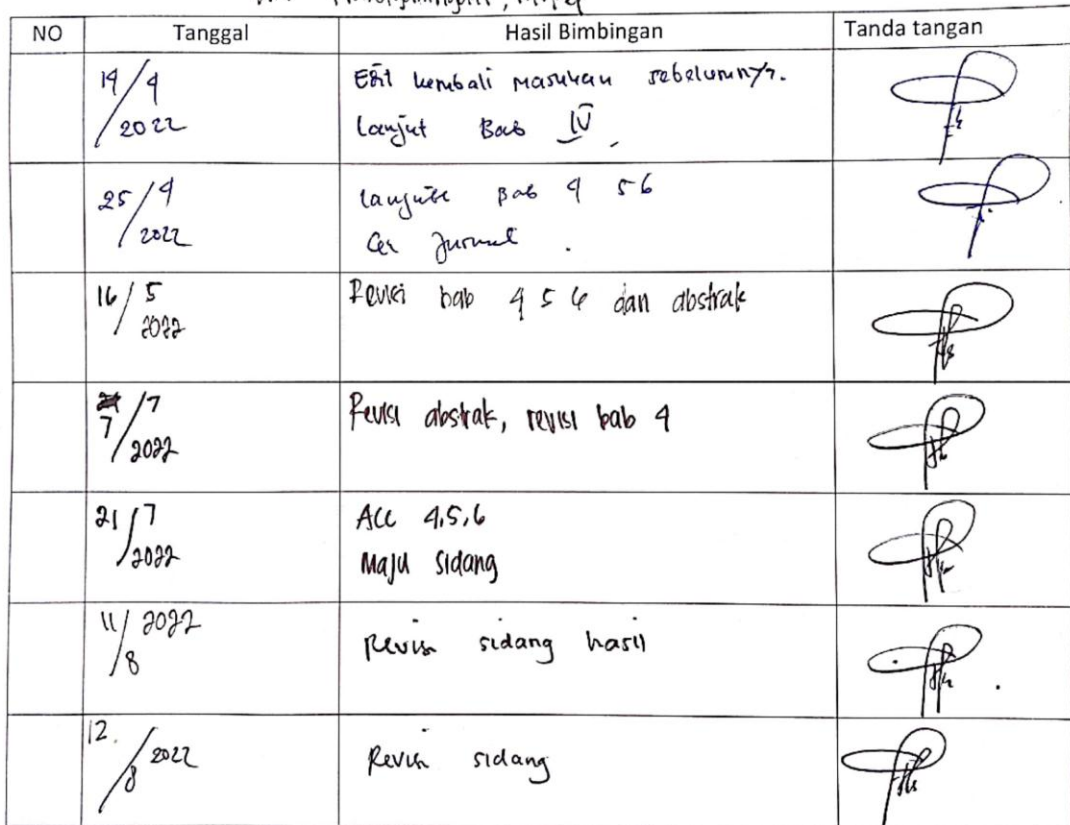 NO Tanggal Hasil Bimbingan Tanda tangan
19/4 2022 Edit kembali masukan sebelumnya.
Lanjut Bab IV
25/4 2022 Lanjutke Bab 4 5 6
Jurnal
16/5 2022 Revisi bab 4 5 6 dan abstrak
7/7 2022 Revisi abstrak, revisi bab 4
21/7 2022 ACC 4,5,6
Maju Sidang
11/8 2022 Revisi sidang hasil
12/8 2022 Revisi sidang